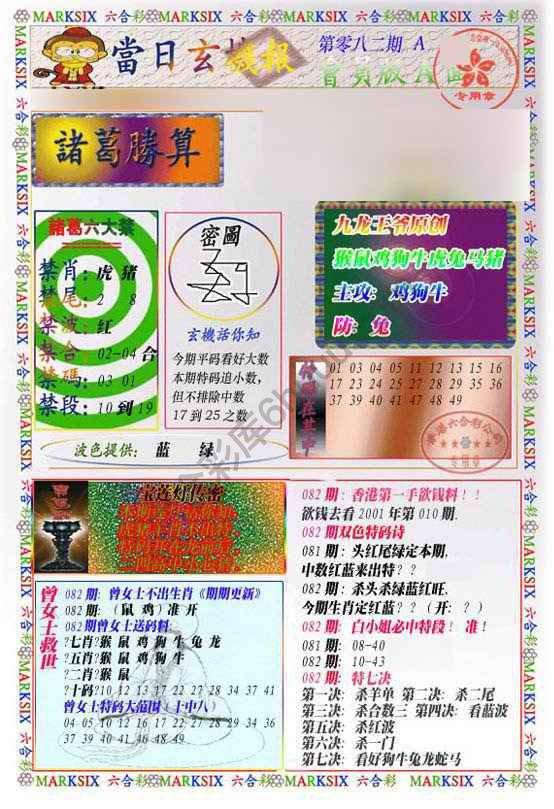 MARKSIX 六合彩 MARKSIX 六合彩 MARKSIX 六合彩 MARKSIX
當日玄機報
第零八二期 A
會員版A面
专用章
諸葛勝算
諸葛六大禁
禁肖：虎 猪
禁尾：2 8
禁波：红
禁合：02-04 合
禁碼：03 01
禁段：10 到 19
密圖
玄機話你知
今期平码看好大数
本期特码追小数，
但不排除中数
17 到 25 之数
波色提供： 蓝 绿
九龙王爷原创
猴鼠鸡狗牛虎兔马猪
主攻：鸡狗牛
防：兔
01 03 04 05 11 12 13 15 16
17 22 23 28 29 31 35 36
37 39 40 41 47 48 49
香港六合彩公司
专用章
宝莲灯传密
曾女士救世
082 期：曾女士不出生肖《期期更新》
082 期：（鼠 鸡）准 开
082 期曾女士送码料：
?七肖?猴 鼠 鸡 狗 牛 兔 龙
?五肖?猴 鼠 鸡 狗 牛
?二肖?猴 鼠
?十码?10 12 13 17 22 27 28 34 37 41
曾女士特码大范围（十中八）
04 05 10 12 16 17 22 23 27 28 29 34 36
37 39 40 41 42 46 48 49
082 期：香港第一手欲钱料！！
欲钱去看 2001 年第 010 期.
082 期双色特码诗
081 期：头红尾绿定本期，
中数红蓝来出特？？
082 期：杀头杀绿蓝红旺.
今期生肖定红蓝？？（开：？）
082 期：白小姐必中特段！ 准！
081 期：08-40
082 期：10-43
082 期：特七决
第一决：杀羊单 第二决：杀二尾
第三决：杀合数三 第四决：看蓝波
第五决：杀红波
第六决：杀一门
第七决：看好狗牛兔龙蛇马
MARKSIX 六合彩 MARKSIX 六合彩 MARKSIX 六合彩 MARKSIX